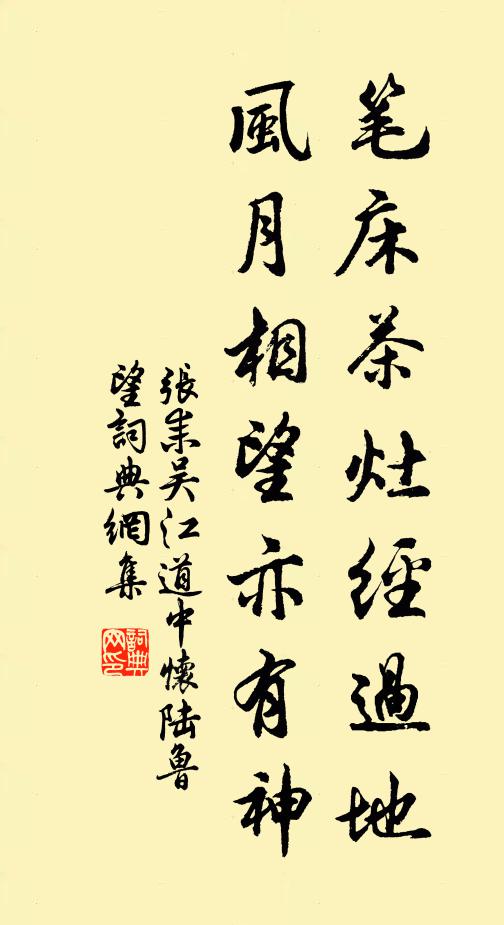 笔床茶灶經過地
風月相望亦有神
張耒吴江道中懷陆魯
望詞典網集
詞典
网印